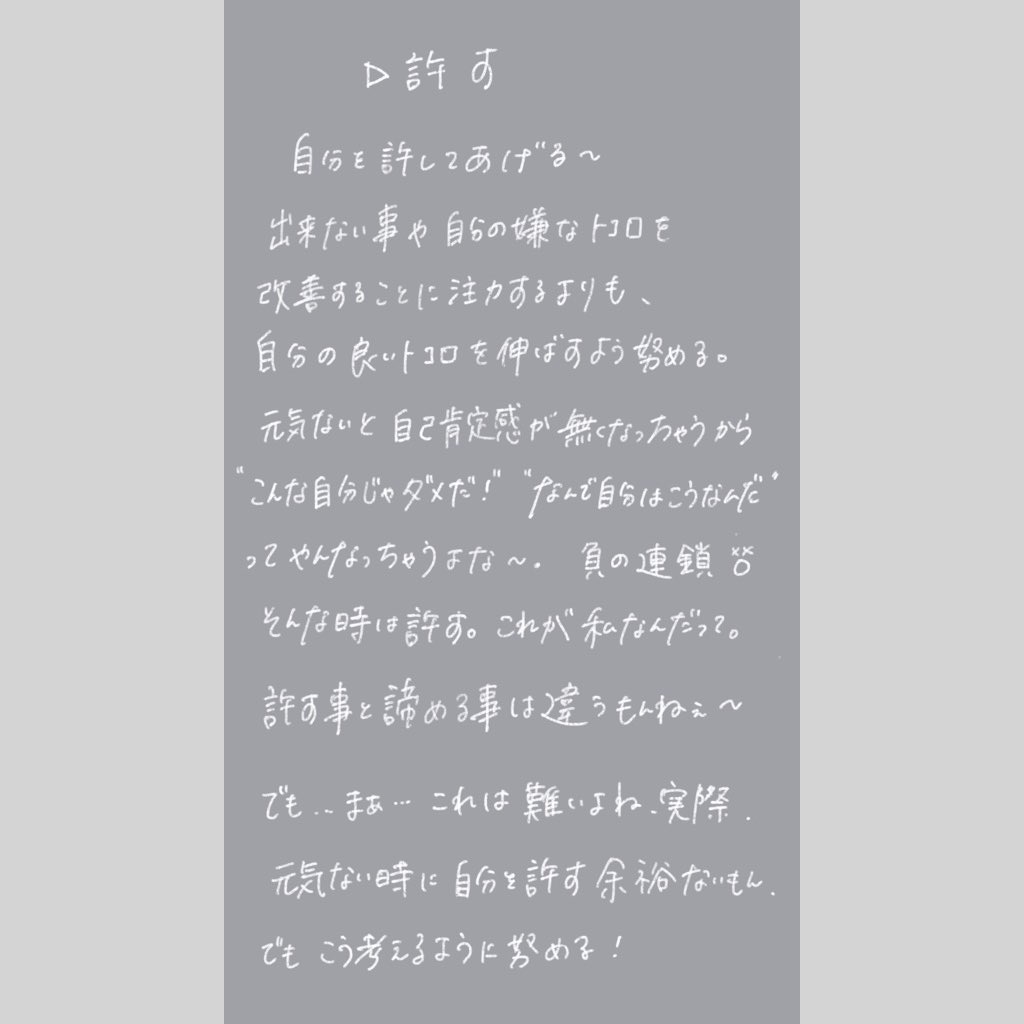 ▷許す
自分を許してあげる～
出来ない事や自分の嫌なトコロを
改善することに注力するよりも、
自分の良いトコロを伸ばすよう努める。
元気ないと自己肯定感が無くなっちゃうから
“こんな自分じゃダメだ!” “なんで自分はこうなんだ”
ってやんなっちゃうよな～. 負の連鎖
そんな時は許す。これが私なんだって。
許す事と諦める事は違うもんねぇ～
でも...まぁ…これは難いよね、実際.
元気ない時に自分を許す余裕ないもん.
でもこう考えるように努める!